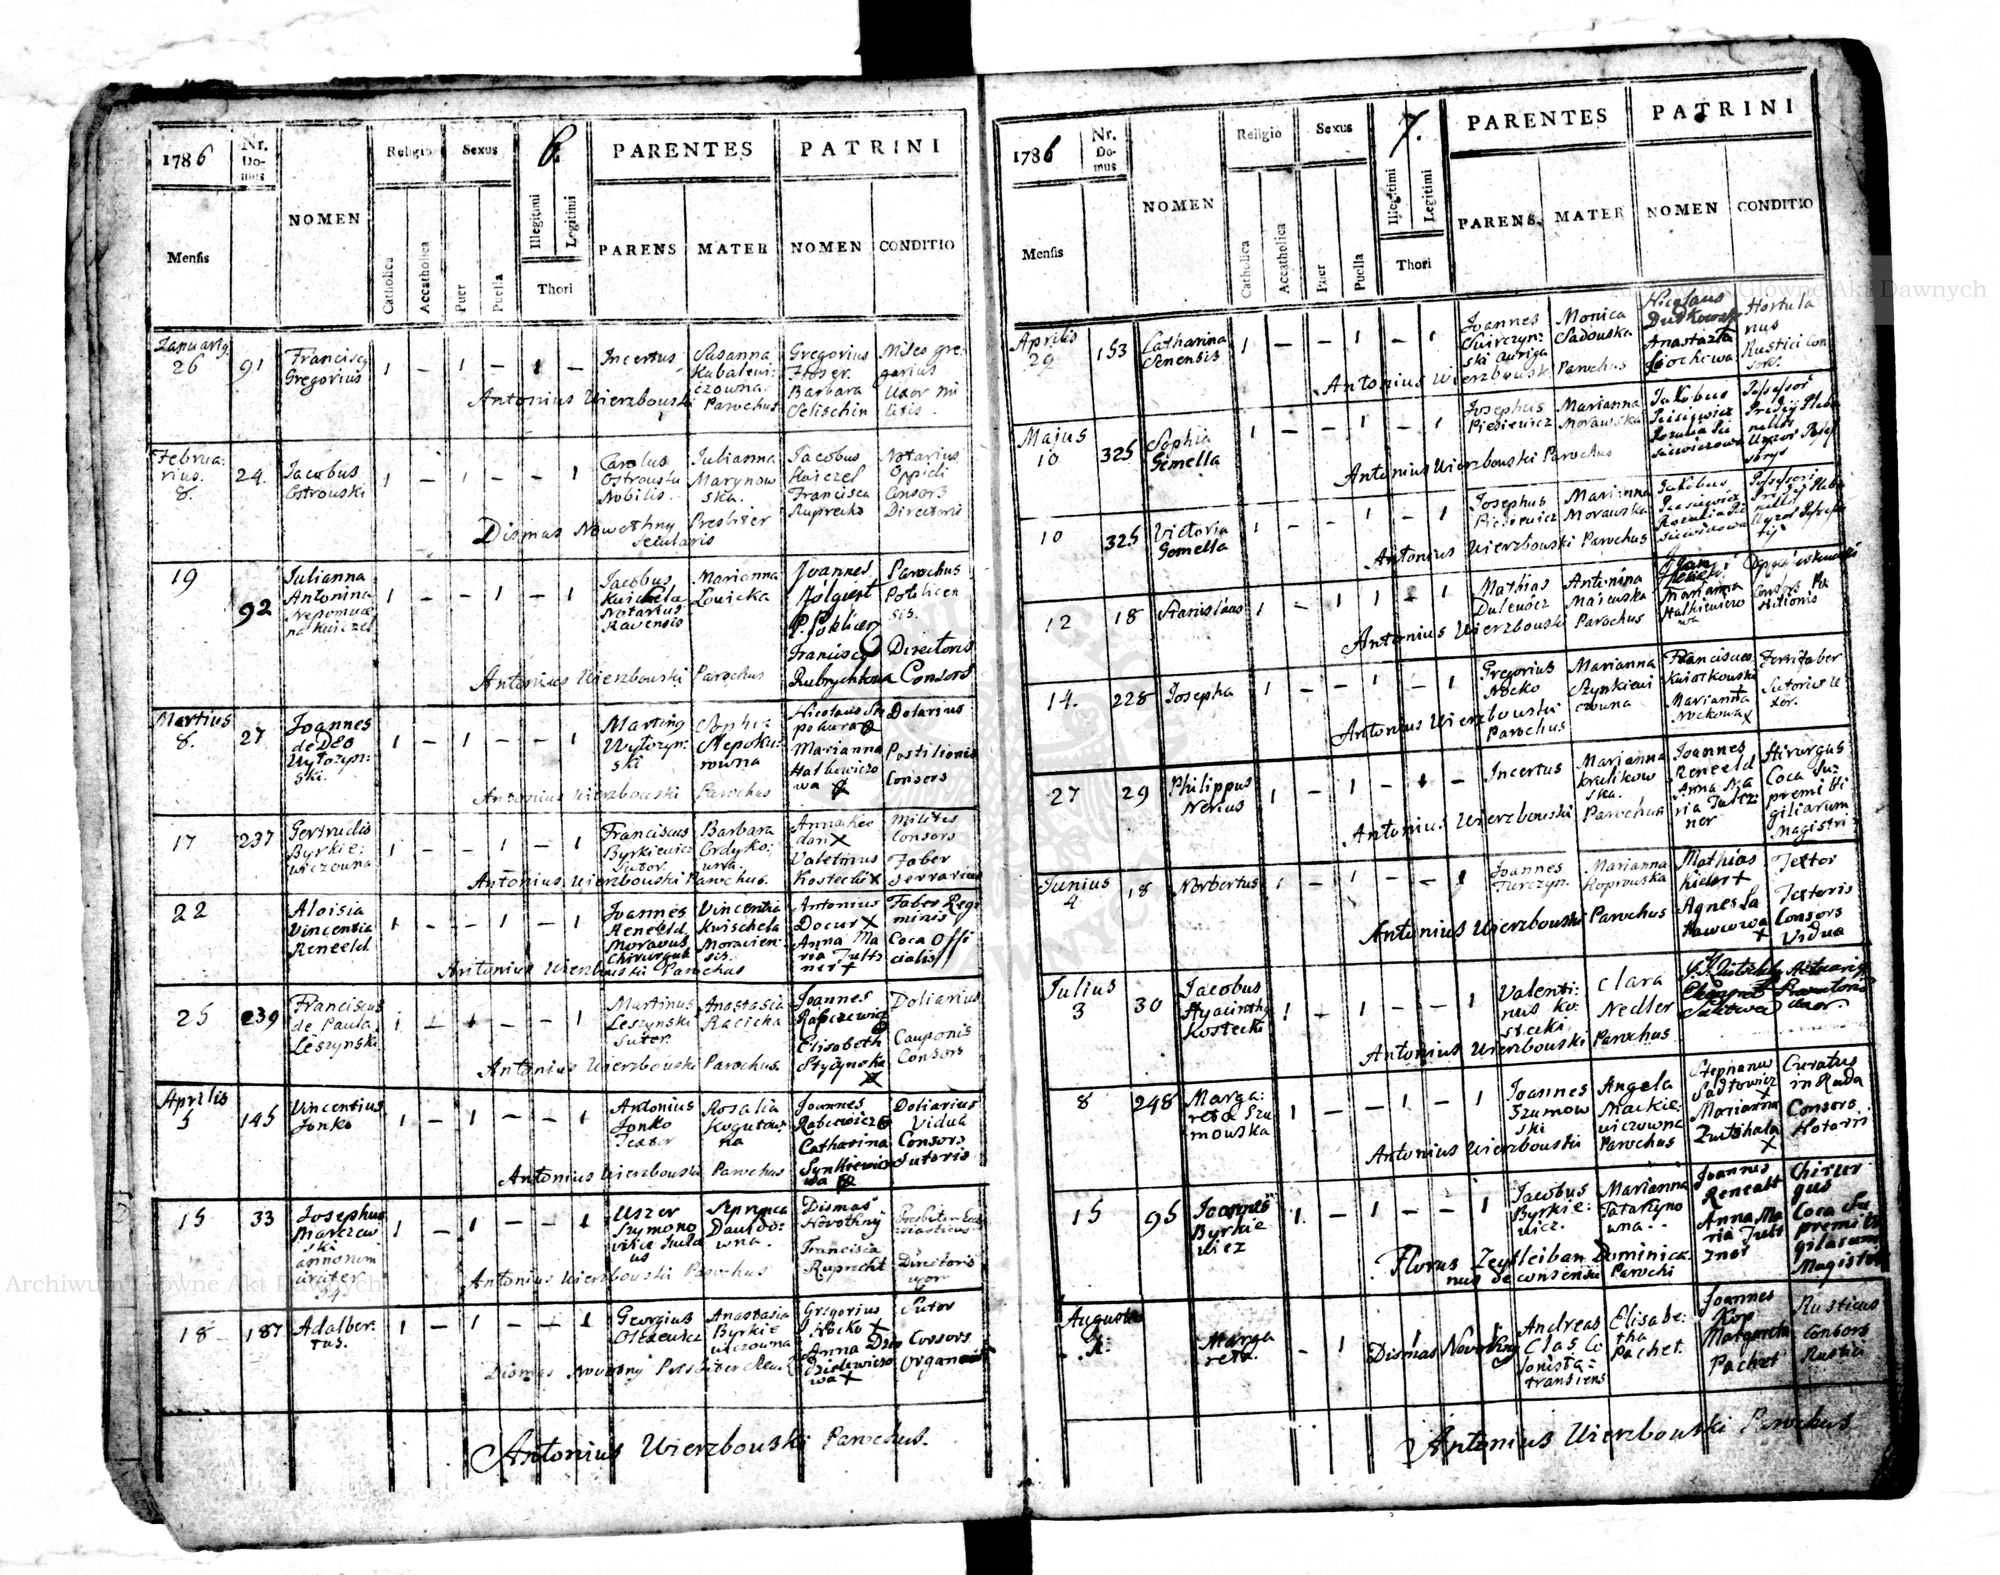 1786
Nr. Domus
NOMEN
Religio
Sexus
6.
PARENTES
PATRINI
Mensis
Catholica
Accatholica
Puer
Puella
Illegitimi
Legitimi
Thori
PARENS
MATER
NOMEN
CONDITIO
Januarij
26
91
Franciscus
Gregorius
1 – 1 – 1 –
Incertus
Susanna
Kubalewi-
czowna.
Gregorius
Barbara
Selischin
Miles gre-
garius
Uxor mi
litis.
Antonius Wierzbouski Parochus
Februa:
rius.
8.
24.
Jacobus
Ostrouski
1 – 1 – – 1
Carolus
Ostrouski
Nobilis.
Julianna
Marynow
ska.
Jacobus
Kwiczel
Francisca
Ruprecht
Notarius
Oppidi
Consors
Directoris
Dismas Nowothny Presbiter
Secularis
19
92
Julianna
Antonina
Nepomuce
na Kwiczel
1 – – 1 – 1
Jacobus
Kwichela
Notarius
Ravensis
Marianna
Lowicka
Joannes
Francisca
Rubrychtowa
Parochus
Directoris
Consors
Antonius Wierzbouski Parochus
Martius
8.
27
Joannes
de DEO
Wytozyn:
ski.
1 – 1 – – 1
Martinus
Wytozyn-
ski
Sophia
Nepoku:
rowna
Marianna
Halkowiczo
wa
Dolarius
Postilionis
Consors
Antonius Wierzbouski Parochus
17
237
Gertrudis
Byrkie:
wiczowna
1 – – 1 – 1
Franciscus
Byrkiewicz
Sutor
Barbara
Ordyko:
wna.
Valetinus
Kostecki x
Militis
Consors
Faber
Serrarius
Antonius Wierzbouski Parochus.
22
Aloisia
Vincentia
Reneeld
1 – – 1 – 1
Joannes
Reneeld
Moravus
Chirurgus
Vincentia
Kwischela
Moravien-
sis.
Antonius
Docur x
Anna Ma
ria Tutts
ner +
Faber Regi
minis
Coca Offi
cialis
Antonius Wierzbouski Parochus
25
239
Franciscus
de Paula
Leszynski
1 – 1 – – 1
Martinus
Leszynski
Sutor.
Anastasia
Racicka
Joannes
Rabczewicz
Elisabeth
Styczynska
Doliarius
Cauponis
Consors
Antonius Wierzbouski Parochus.
Aprilis
5
145
Vincentius
Jonko
1 – 1 – – 1
Antonius
Jonko
Textor
Rosalia
Kogutow-
na
Joannes
Rabiewicz
Catharina
Synkiewiczo
wa
Doliarius
Vidua
Consors
Sutoris
Antonius Wierzbouski Parochus
15
33
Josephus
Marczew-
ski
annorum
circiter
1 – 1 – – 1
Uszer
Szymono
Dawido:
wna.
Dismas
Novothny
Francisca
Ruprecht
Directoris
uxor
Antonius Wierzbouski Parochus
18
187
Adalber-
tus.
1 – 1 – – 1
Georgius
Anastasia
Byrkie
wiczowna
Gregorius
Nocko +
Anna Dzo
dzielewiczo
wa +
Sutor
Consors
Organarij
Dismas Novotny Presbiter
Antonius Wierzbouski Parochus.
1786
Nr. Domus
NOMEN
Religio
Sexus
7.
PARENTES
PATRINI
Mensis
Catholica
Accatholica
Puer
Puella
Illegitimi
Legitimi
Thori
PARENS.
MATER
NOMEN
CONDITIO
Aprilis
29
153
Catharina
Senensis
1 – – 1 – 1
Joannes
Swirczyn:
ski Auriga
Monica
Sadouska
Nicolaus
Anastazia
Sochowa
Hortula
nus
Rustici Con
sors.
Antonius Wierzbouski Parochus
Majus
10
325
Sophia
Gemella
1 – – 1 – 1
Josephus
Piesiewicz
Marianna
Morawska
Jakobus
Antonius Wierzbouski Parochus
10
325
Victoria
Gemella
1 – – 1 – 1
Josephus
Piesiewicz
Marianna
Morauska
Jakobus
Antonius Wierzbouski Parochus
12
18
Stanislaus
1 – 1 – 1
Mathias
Dulewicz
Antonina
Majewska
Marianna
Halkiewiczo
wa
Consors Po
stilionis
Antonius Wierzbouski Parochus
14.
228
Josepha
1 – – 1 – 1
Gregorius
Nocko
Marianna
Szynkiewi
czowna
Franciscus
Kwiatkouski
Marianna
Nockowa x
Ferrifaber
Sutoris u
xor.
Antonius Wierzbouski
Parochus
27
29
Philippus
Nerius
1 – 1 – 1 –
Incertus
Marianna
Kralikow
ska.
Joannes
Reneeld
Anna Ma
ria Tutz:
ner
Hirurgus
Coca Su-
premi Vi
giliarum
Magistri
Antonius Wierzbouski Parochus
Junius
4
18
Norbertus
1 – 1 – – 1
Joannes
Turczyn.
Marianna
Koprouska
Mathias
Kieler +
Agnes La
wowa
+
Textor
Textoris
Consors
Vidua
Antonius Wierzbouski Parochus
Julius
3
30
Jacobus
Hyacinthus
Kostecki
1 – 1 – – 1
Valenti:
nus Ko:
stecki.
Clara
Nedler
uxor.
Antonius Wierzbouski Parochus
8
248
Marga:
reta Szu
mowska
1 – – 1 – 1
Joannes
Szumow
ski
Angela
Mackie:
wiczowna
Stephanus
Sadtowicz
Marianna
Zwishala
x
Curatus
in Rada
Consors
Notarii
Antonius Wierzbouski Parochus
15
95
Joannes
Byrkie
wicz
1 – 1 – – 1
Jacobus
Byrkie:
wicz.
Marianna
Tatarzyno
wna.
Joannes
Renealt
Anna Ma
ria Tutt
zner
Chirur
gus
Coca Su
premi Vi
gilarum
Magistri
Florus Zeytleiban Dominica
nus de consensu Parochi
Augustus
Marga
reta.
– 1
Andreas
Clas Co
lonista:
transiens
Elisabe:
tha
Pachet.
Joannes
Kop
Margareta
Pachet
Rusticus
Consors
Rustici
Dismas Novothny
Antonius Wierzbouski Parochus
Archiwum Główne Akt Dawnych
Archiwum Główne Akt Dawnych